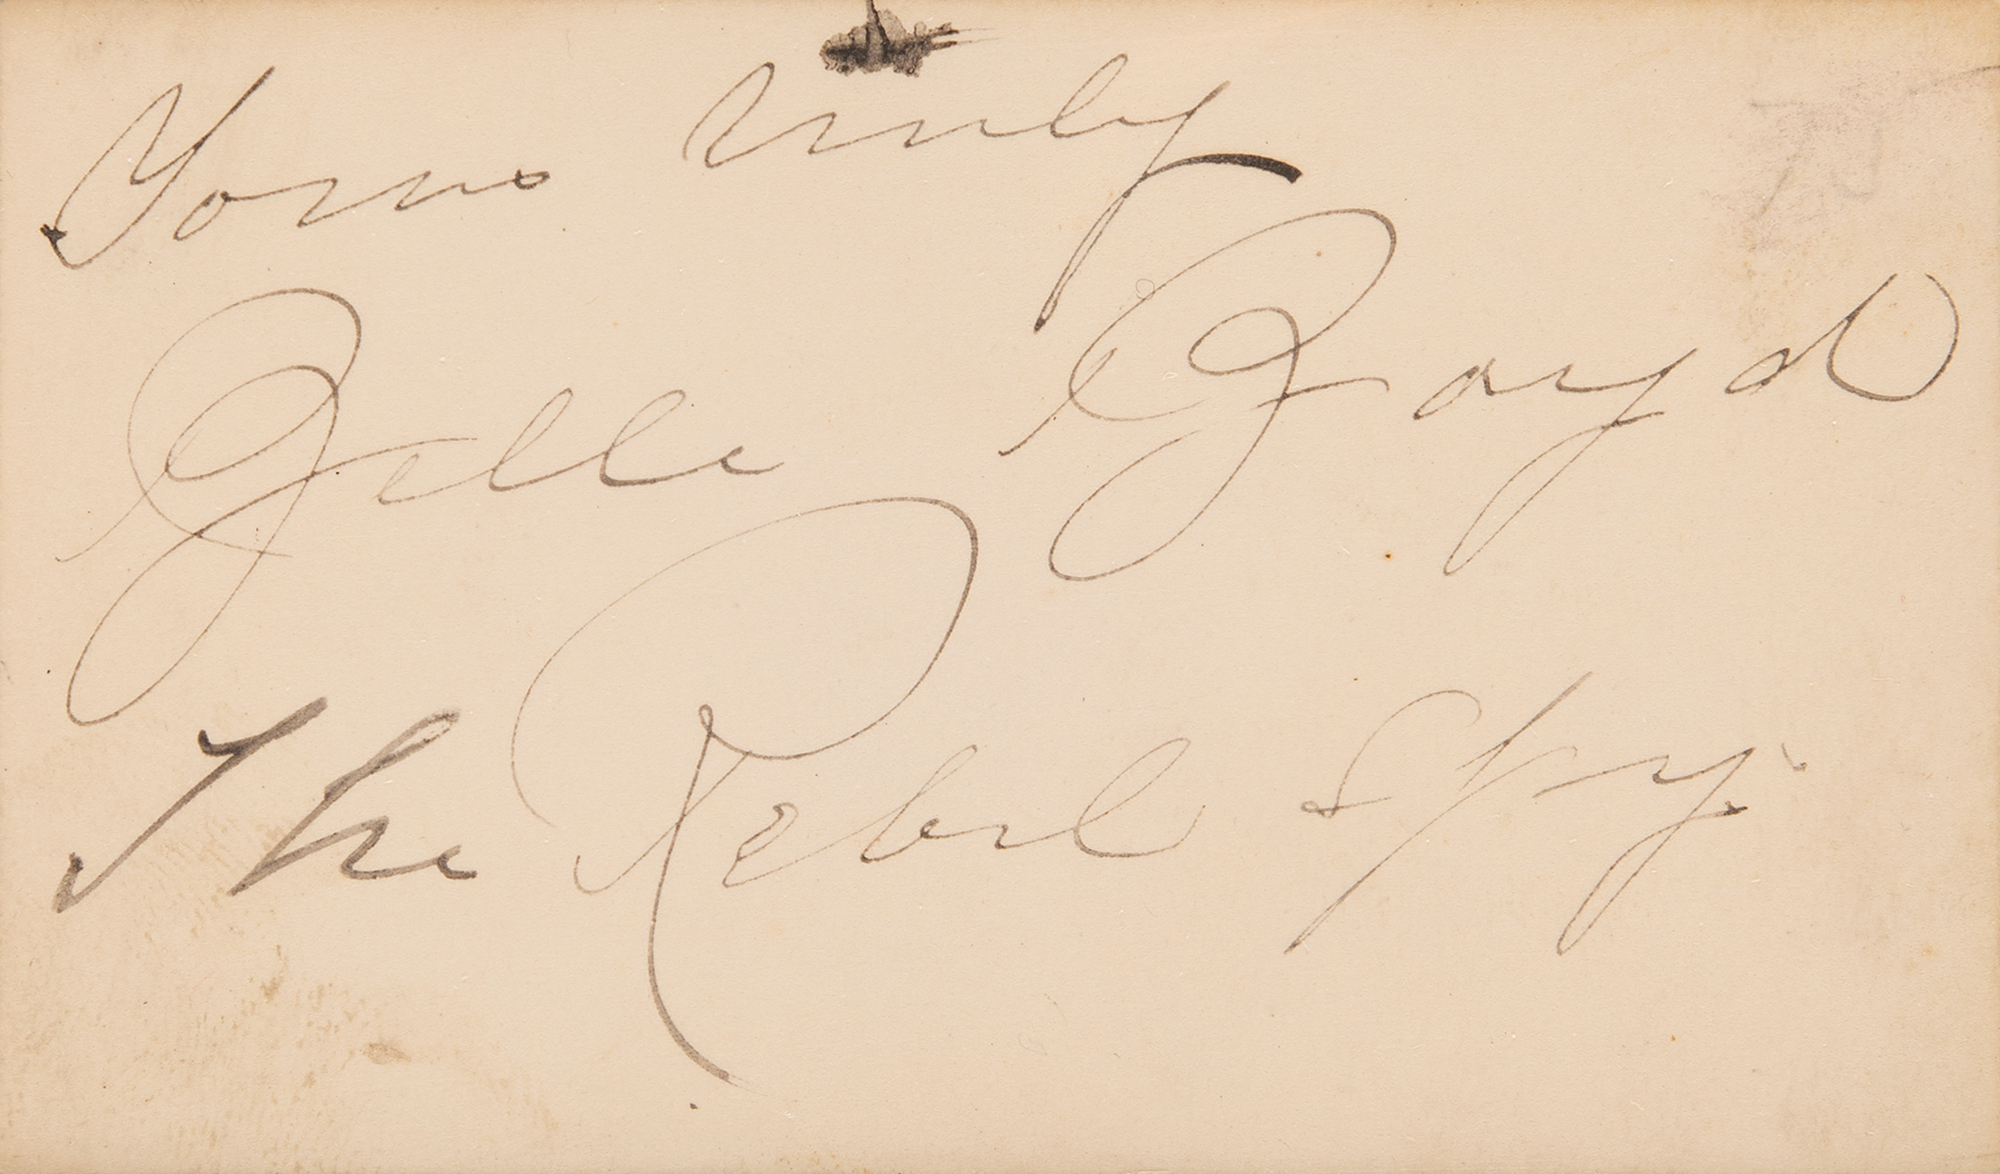 Yours truly
Belle Boyd
The Rebel Spy.